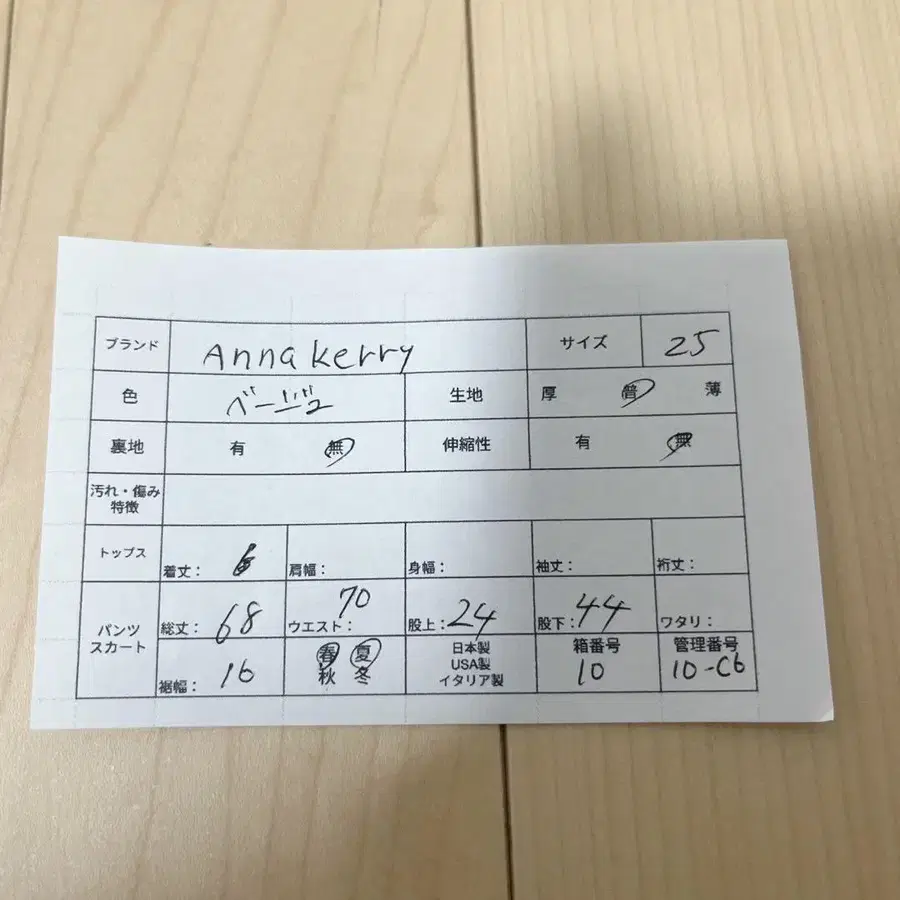 ブランド Anna Kerry サイズ 25
色 ベージュ 生地 厚 普 薄
裏地 有 無 伸縮性 有 無
汚れ・傷み
特徴
トップス 着丈: 肩幅: 身幅: 袖丈: 裄丈:
パンツ
スカート
総丈: 68 ウエスト: 70 股上: 24 股下: 44 ワタリ:
裾幅: 16
春 夏
秋 冬
日本製
USA製
イタリア製
箱番号
10
管理番号
10-C6